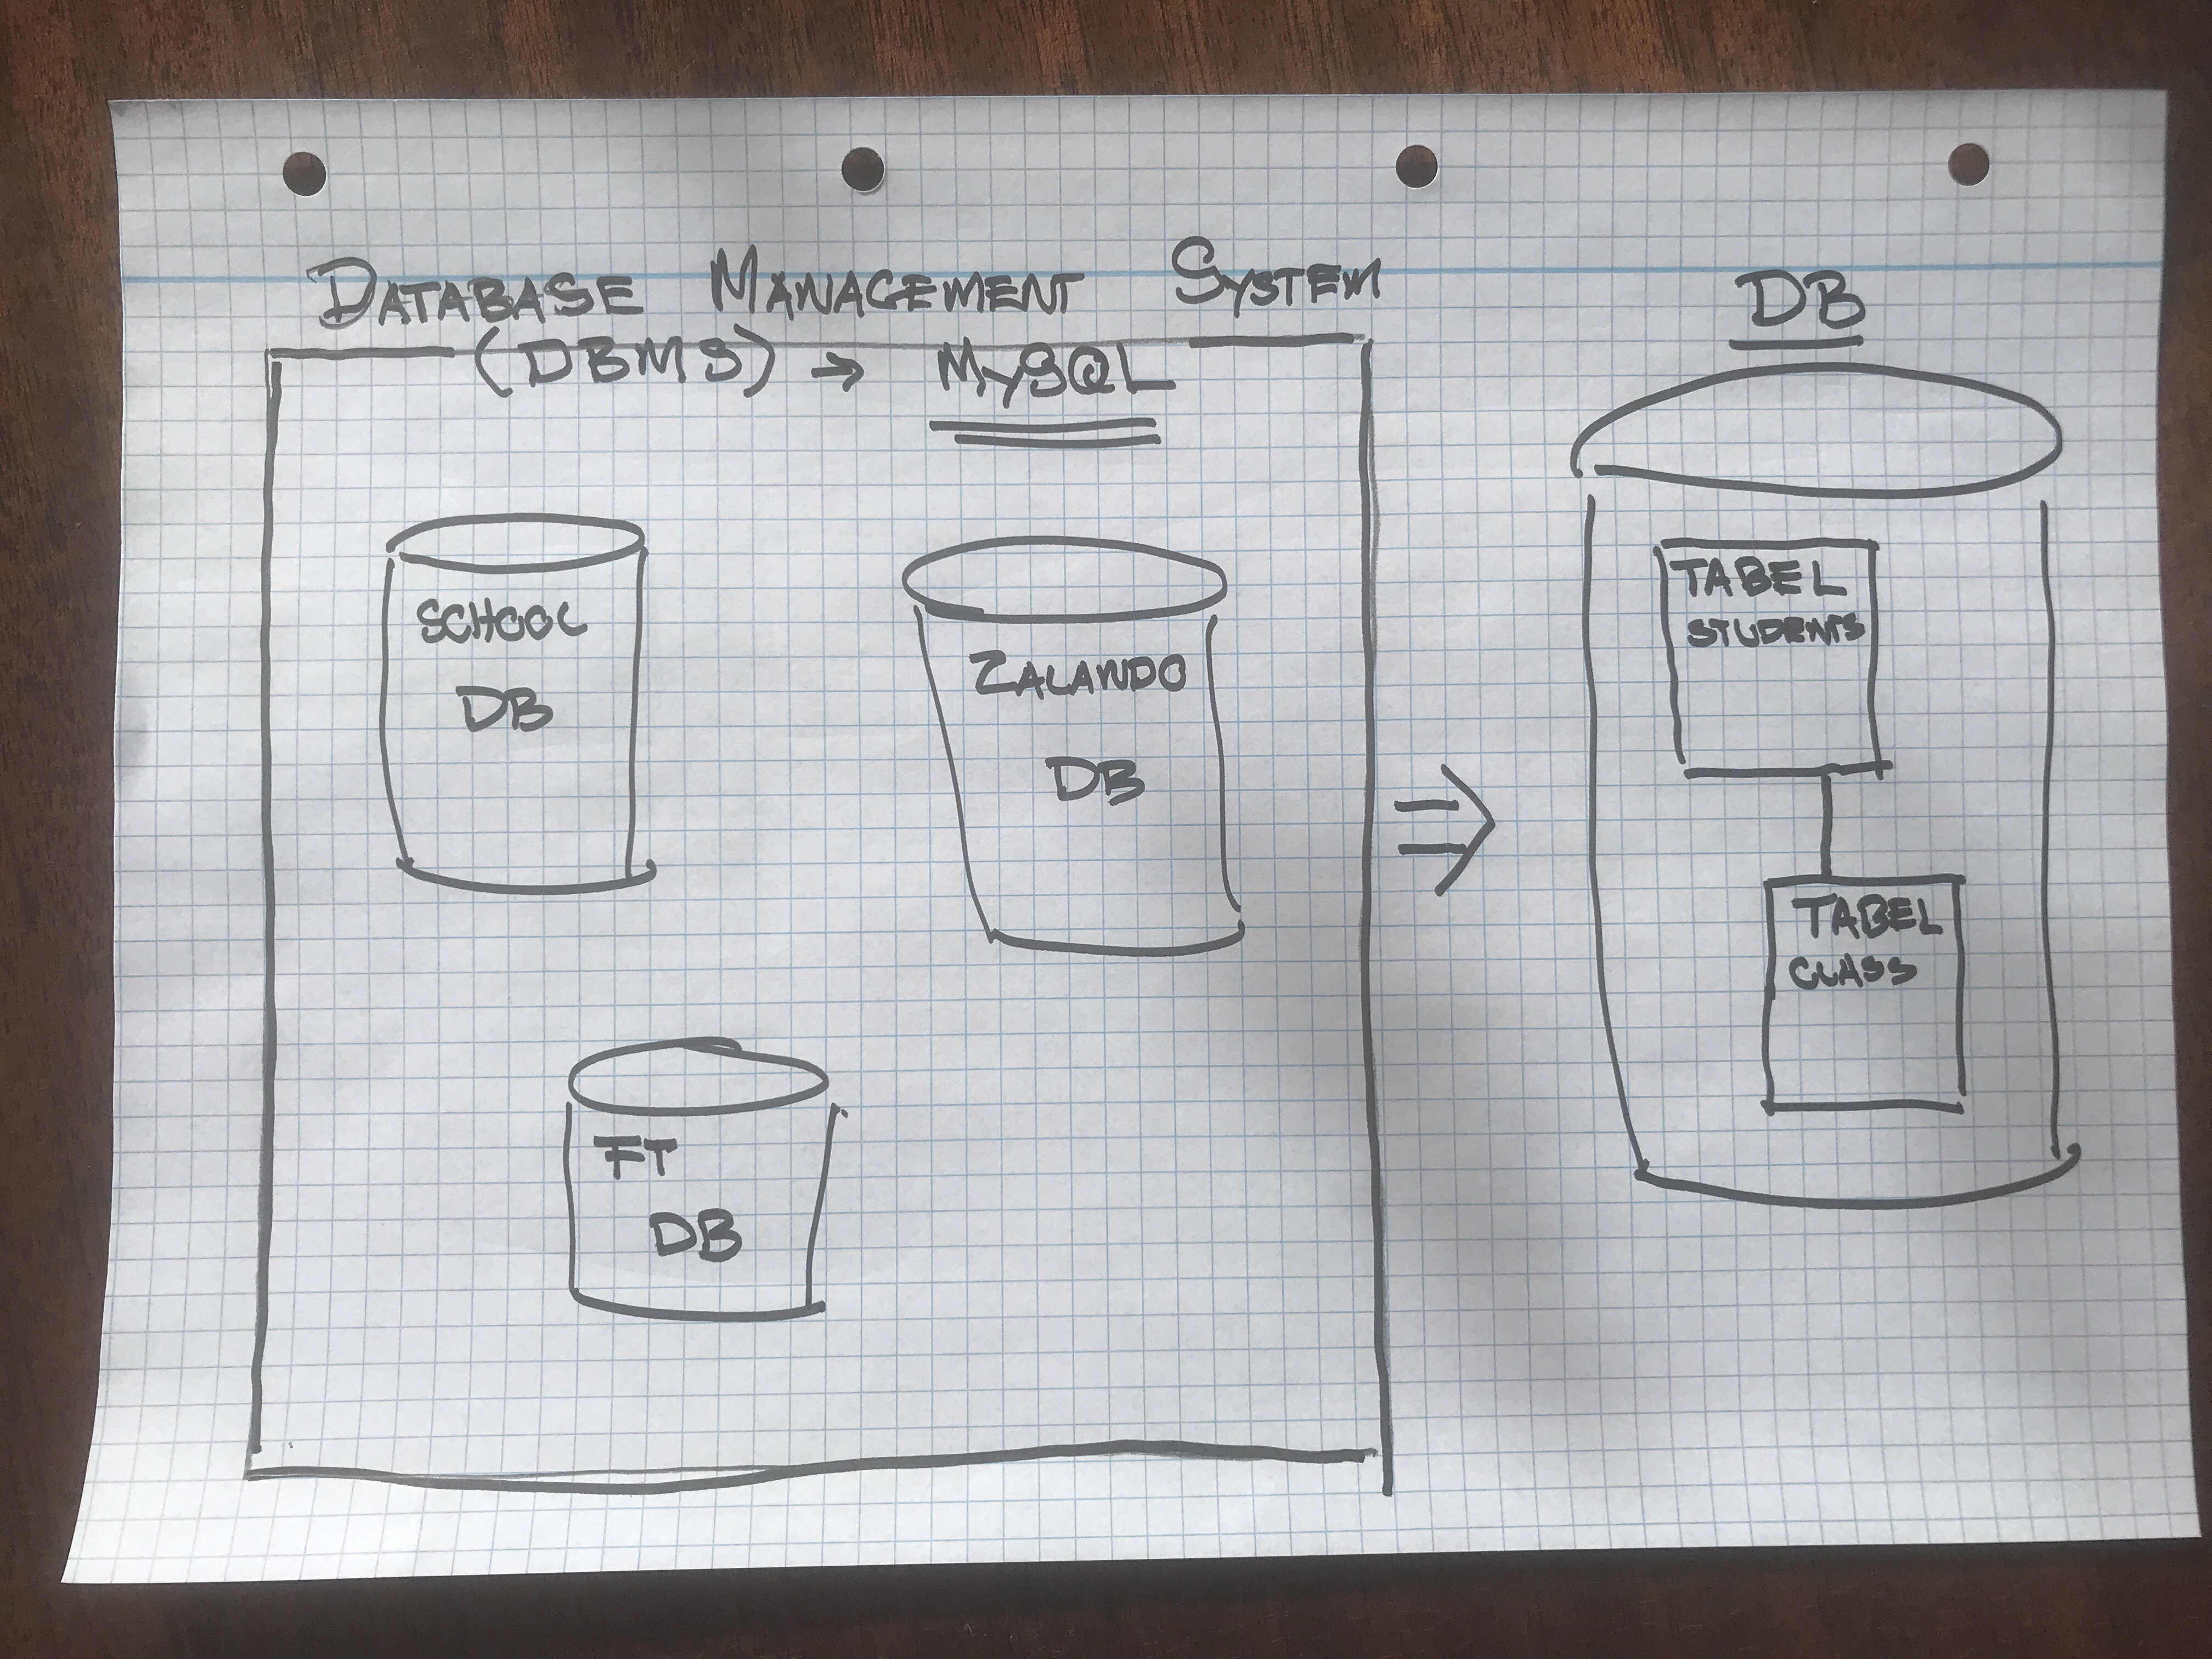 DATABASE MANAGEMENT SYSTEM
(DBMS) → MySQL
SCHOOL
DB
ZALANDO
DB
FT
DB
⇒
DB
TABEL
STUDENTS
TABEL
CLASS